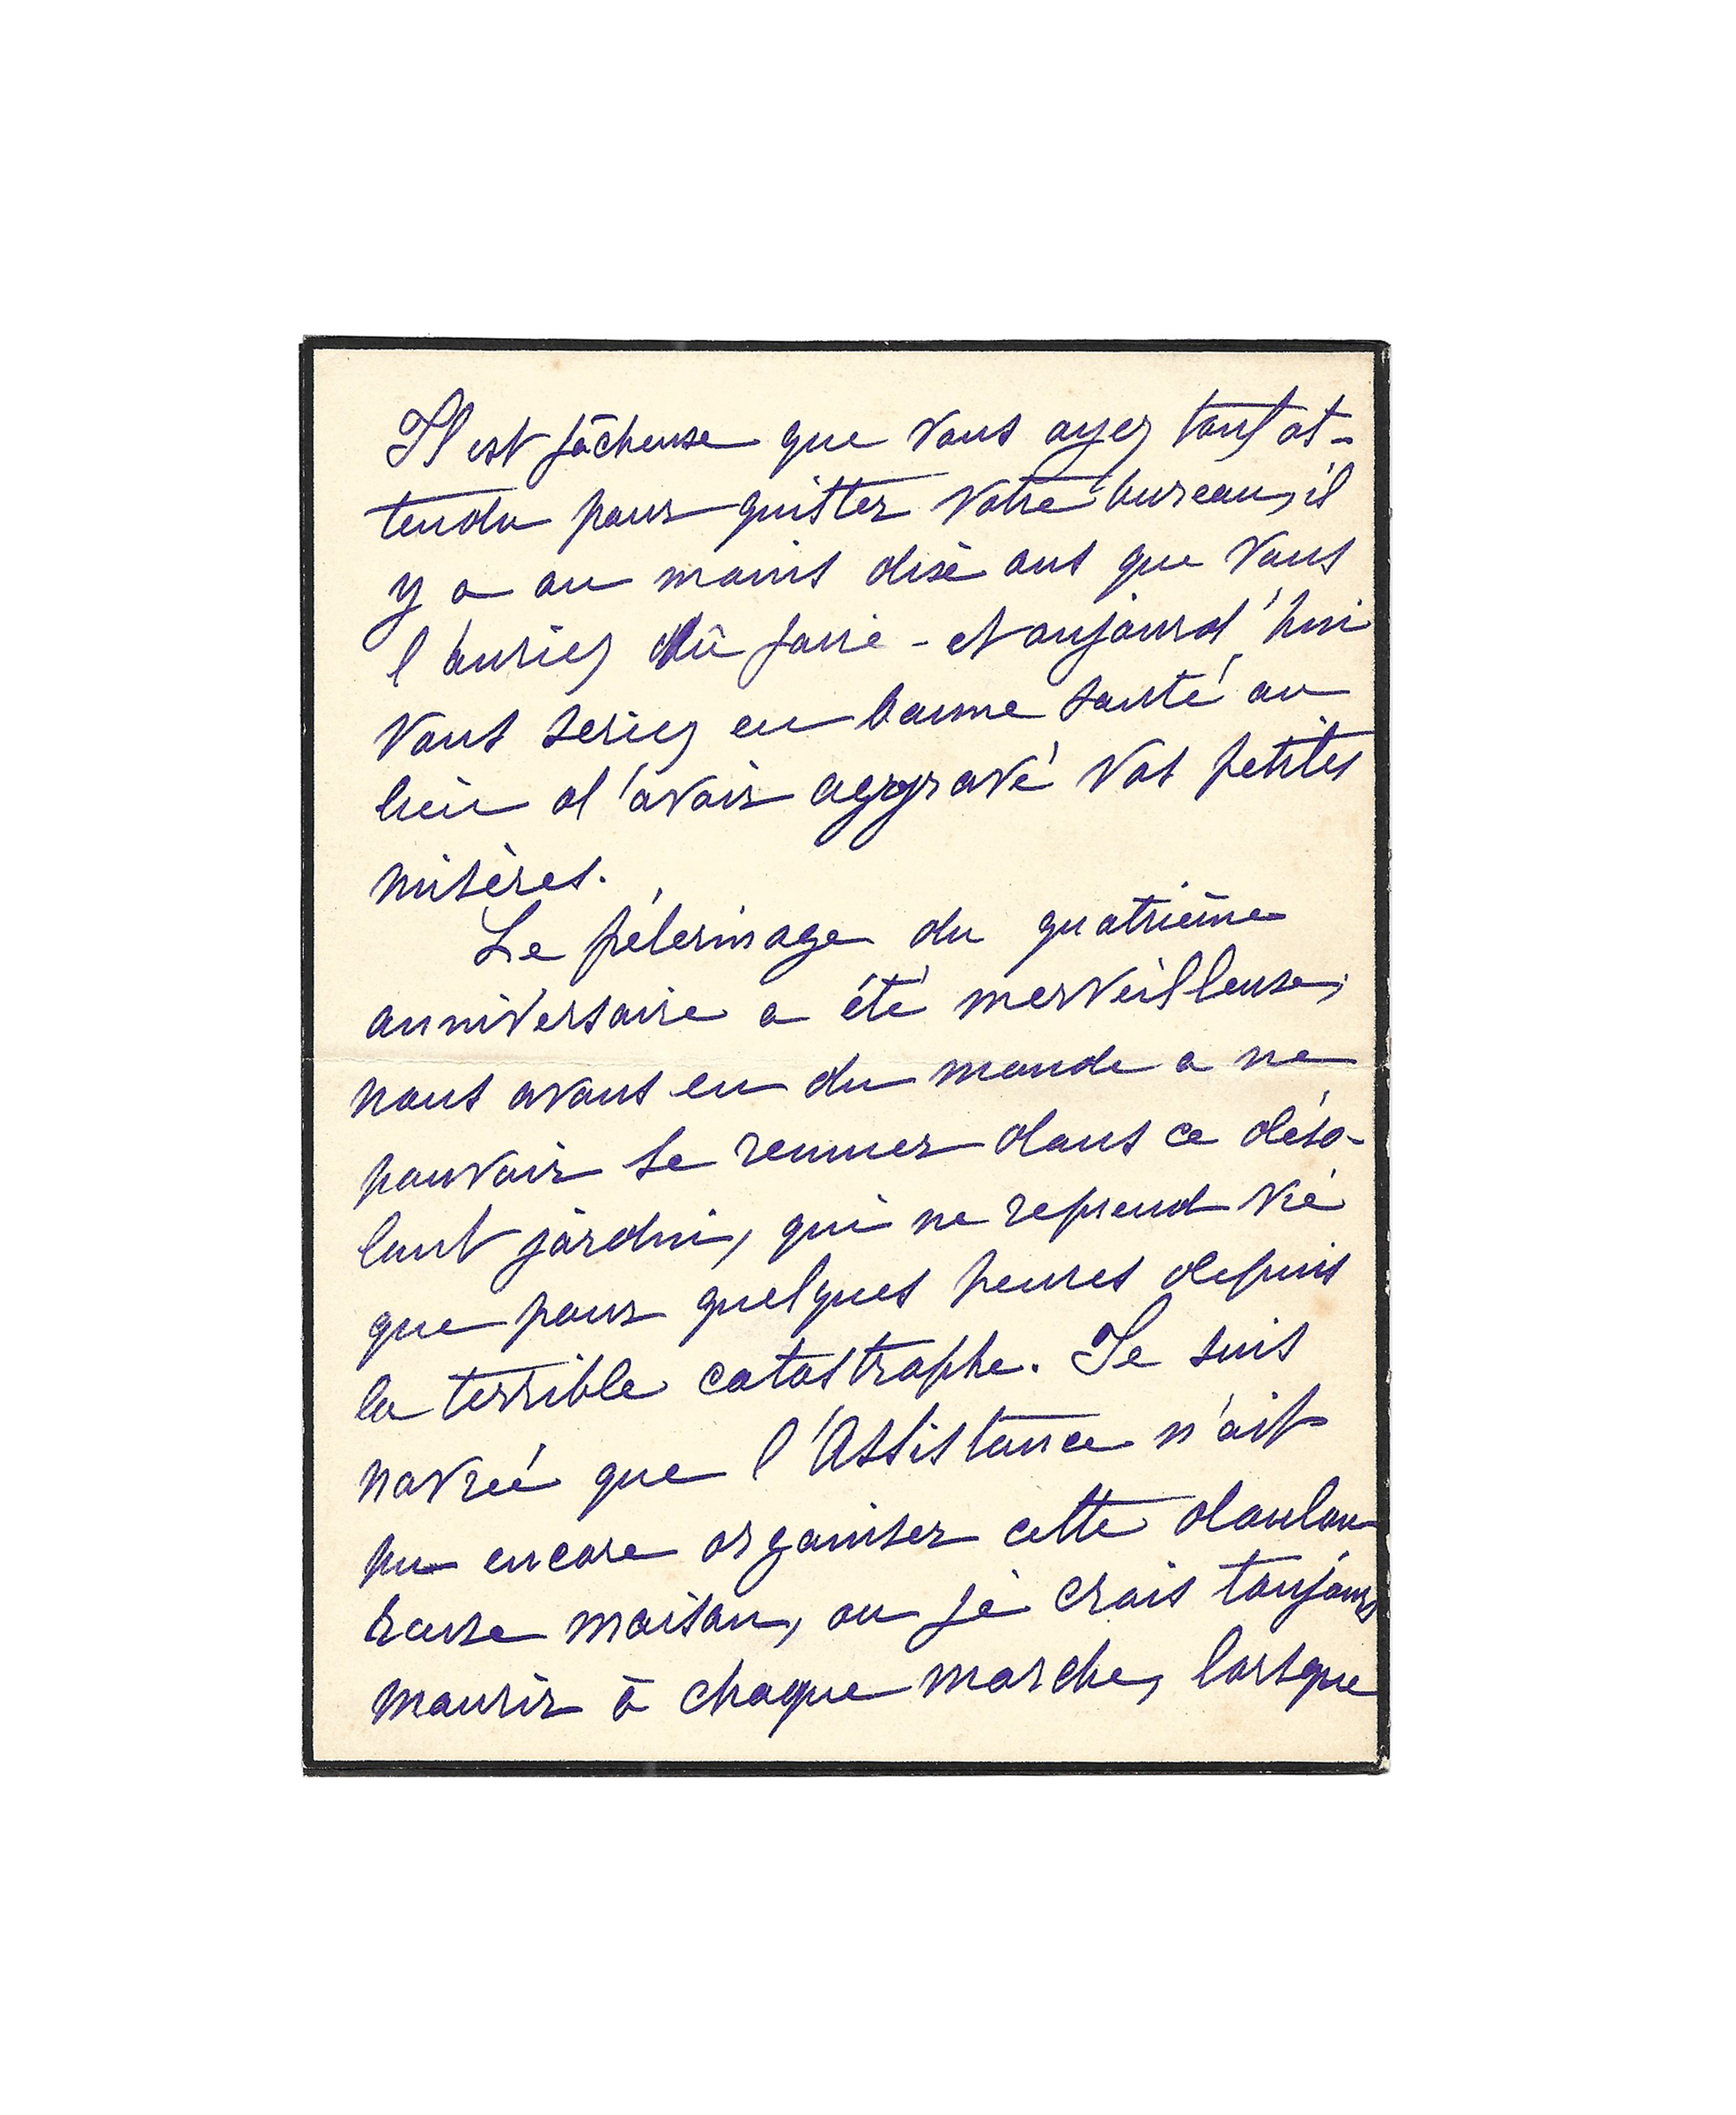 Il est fâcheuse que vous ayez tant at-
tendu pour quitter votre bureau, il
y a au moins dixè ans que vous
l'auriez dû faire - et aujourd'hui
vous seriez en bonne santé au
lieu d'avoir aggravé vos petites
misères.
Le pélerinage du quatrième
anniversaire a été merveilleuse,
nous avons eu du monde a ne
pouvoir se remuer dans ce déso-
lant jardin, qui ne reprend vie
que pour quelques heures depuis
la terrible catastrophe. Je suis
navrée que l'Assistance n'ait
pu encore organiser cette doulou-
reuse maison, ou je crois toujours
mourir à chaque marche, lorsque